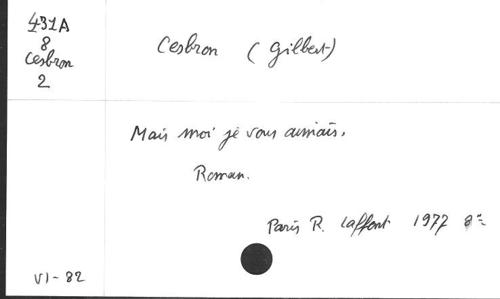 431A
8
Cesbron
2
Cesbron (Gilbert)
Mais moi je vous aimais.
Roman.
Paris R. Laffont 1977 8°
VI-82